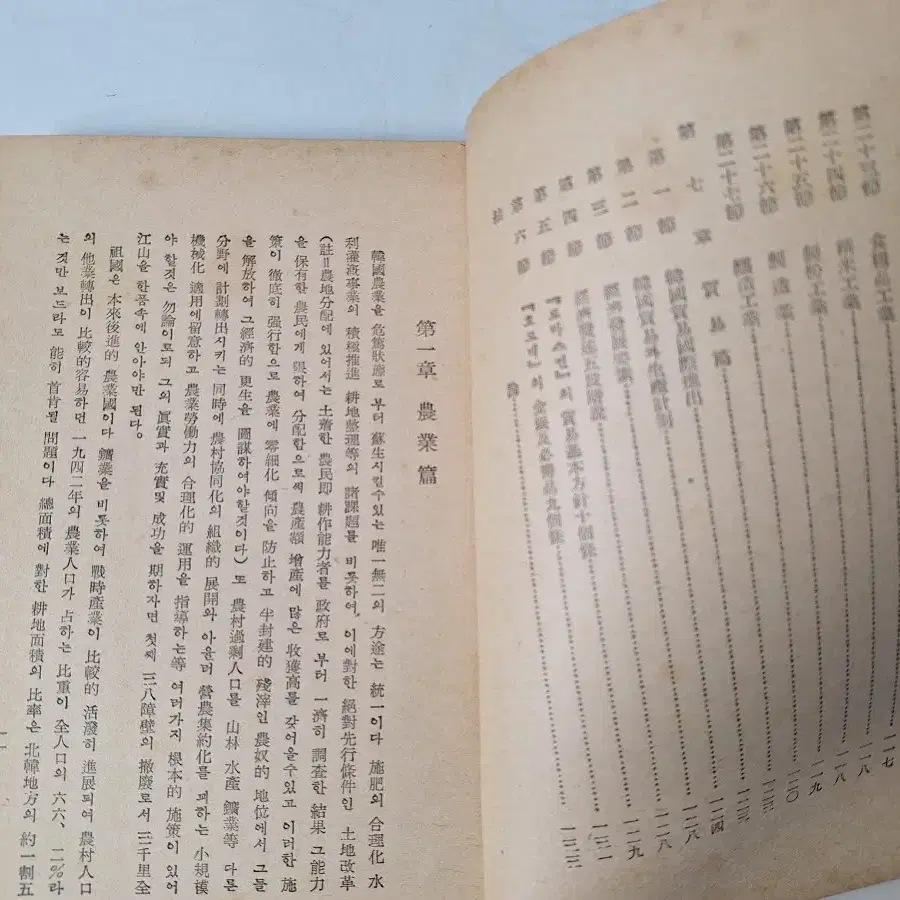 第二十三節 食糧品工業……一一七
第二十四節 精米工業……一一八
第二十五節 工業……一一八
第二十六節 製造業……一一九
第二十七節 釀造工業……一二〇
第七章 貿易篇
第一節 韓國貿易國際進出
第二節 韓國貿易과生產計劃……一二四
第三節 經濟發展策……一二八
第四節 經濟發達五段階說……一二八
第五節 『토마스먼』의 貿易基本方針十個條……一二九
第六節 의 金銀及必需品九個條……一三一
結 論……一三三
第一章 農業篇
韓國農業을 危篤狀態로부터 蘇生시킬수있는 唯一無二의 方途는 統一이다 施肥의 合理化 水
利灌漑事業의 積極推進 耕地整理等의 諸課題를 비롯하여, 이에對한 絕對先行條件인 土地改革
(註=農地分配에 있어서는 土着한 農民即 耕作能力者를 政府로 부터 一濟히 調査한 結果 그能力
을 保有한 農民에게 限하여 分配함으로써 農產額 增產에 많은 收獲高를 갖어올수있고 이러한 施
策이 徹底히 强行함으로 農業에 零細化 傾向을 防止하고 半封建的 殘滓인 農奴的 地位에서 그들
을 解放하여 그經濟的 更生을 圖謀하여야할것이다) 또 農村過剩人口를 山林 水產 鑛業等 다른
分野에 計劃轉出시키는 同時에 農村協同化의 組織的 展開와 아울러 營農集約化를 꾀하는 小規模
機械化 適用에留意하고 農業勞働力의 合理化的 運用을 指導하는等 여러가지 根本的 施策이 있어
야 할것은 勿論이로되 그의 眞實과 充實및 成功을 期하자면 첫째 三八障壁의 撤廢로서 三千里全
江山을 한품속에 안아야만 된다。
祖國은 本來後進的 農業國이다 鑛業을 비롯하여 戰時產業이 比較的 活潑히 進展되여 農村人口
의 他業轉出이 比較的容易하던 一九四二年의 農業人口가 占하는 比重이 全人口의 六六、二%라
는것만 보드라도 能히 首肯될 問題이다 總面積에 對한 耕地面積의 比率은 北韓地方의 約一割五